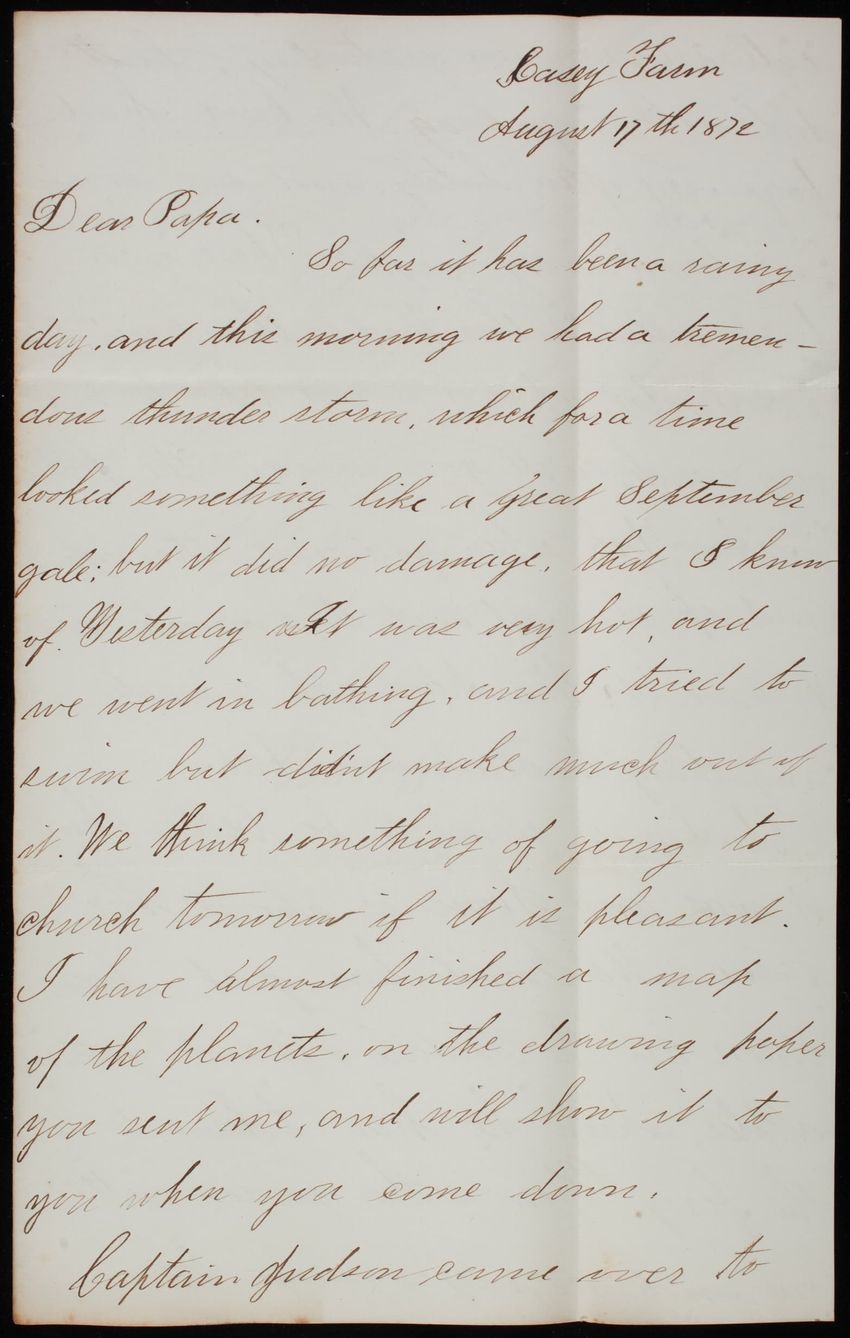 Casey Farm
August 17th 1872
Dear Papa.
So far it has been a rainy
day, and this morning we had a tremen-
dous thunder storm, which for a time
looked something like a great September
gale; but it did no damage, that I know
of. Yesterday it was very hot, and
we went in bathing, and I tried to
swim but didnt make much out of
it. We think something of going to
church tomorrow if it is pleasant.
I have almost finished a map
of the planets, on the drawing paper
you sent me, and will show it to
you when you come down.
Captain Judson came over to